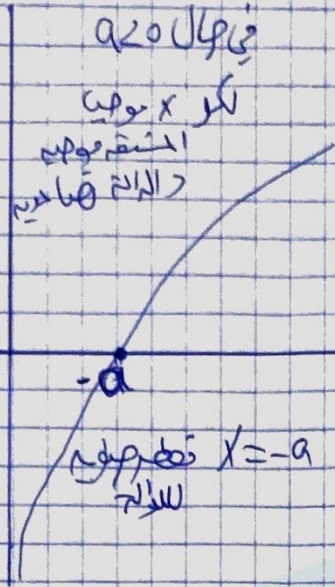 في حال a<0
لكل x موجب
المشتقة موجبة
والدالة تصاعدية
-a
x=-a نقطة
للدالة